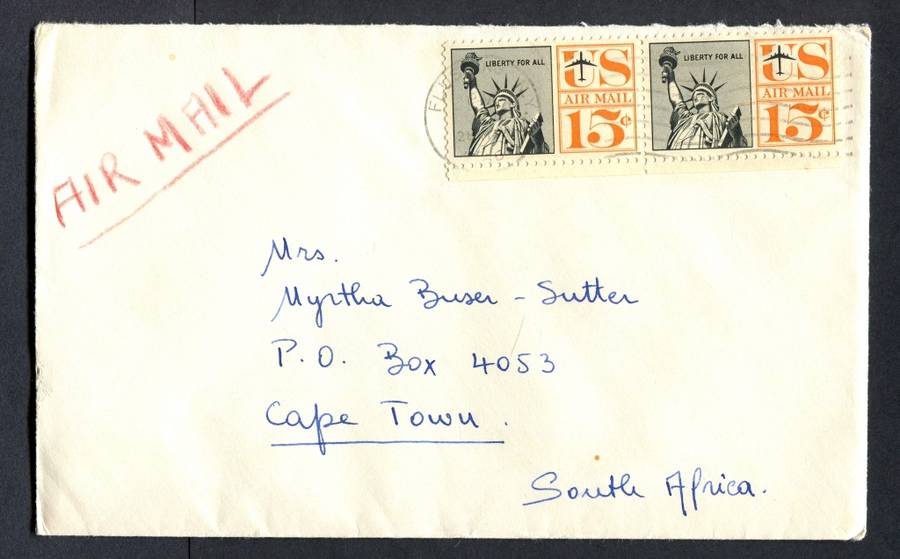 AIR MAIL
LIBERTY FOR ALL
US
AIR MAIL
15¢
LIBERTY FOR ALL
US
AIR MAIL
15¢
Mrs.
Myrtha Buser - Sutter
P. O. Box 4053
Cape Town.
South Africa.